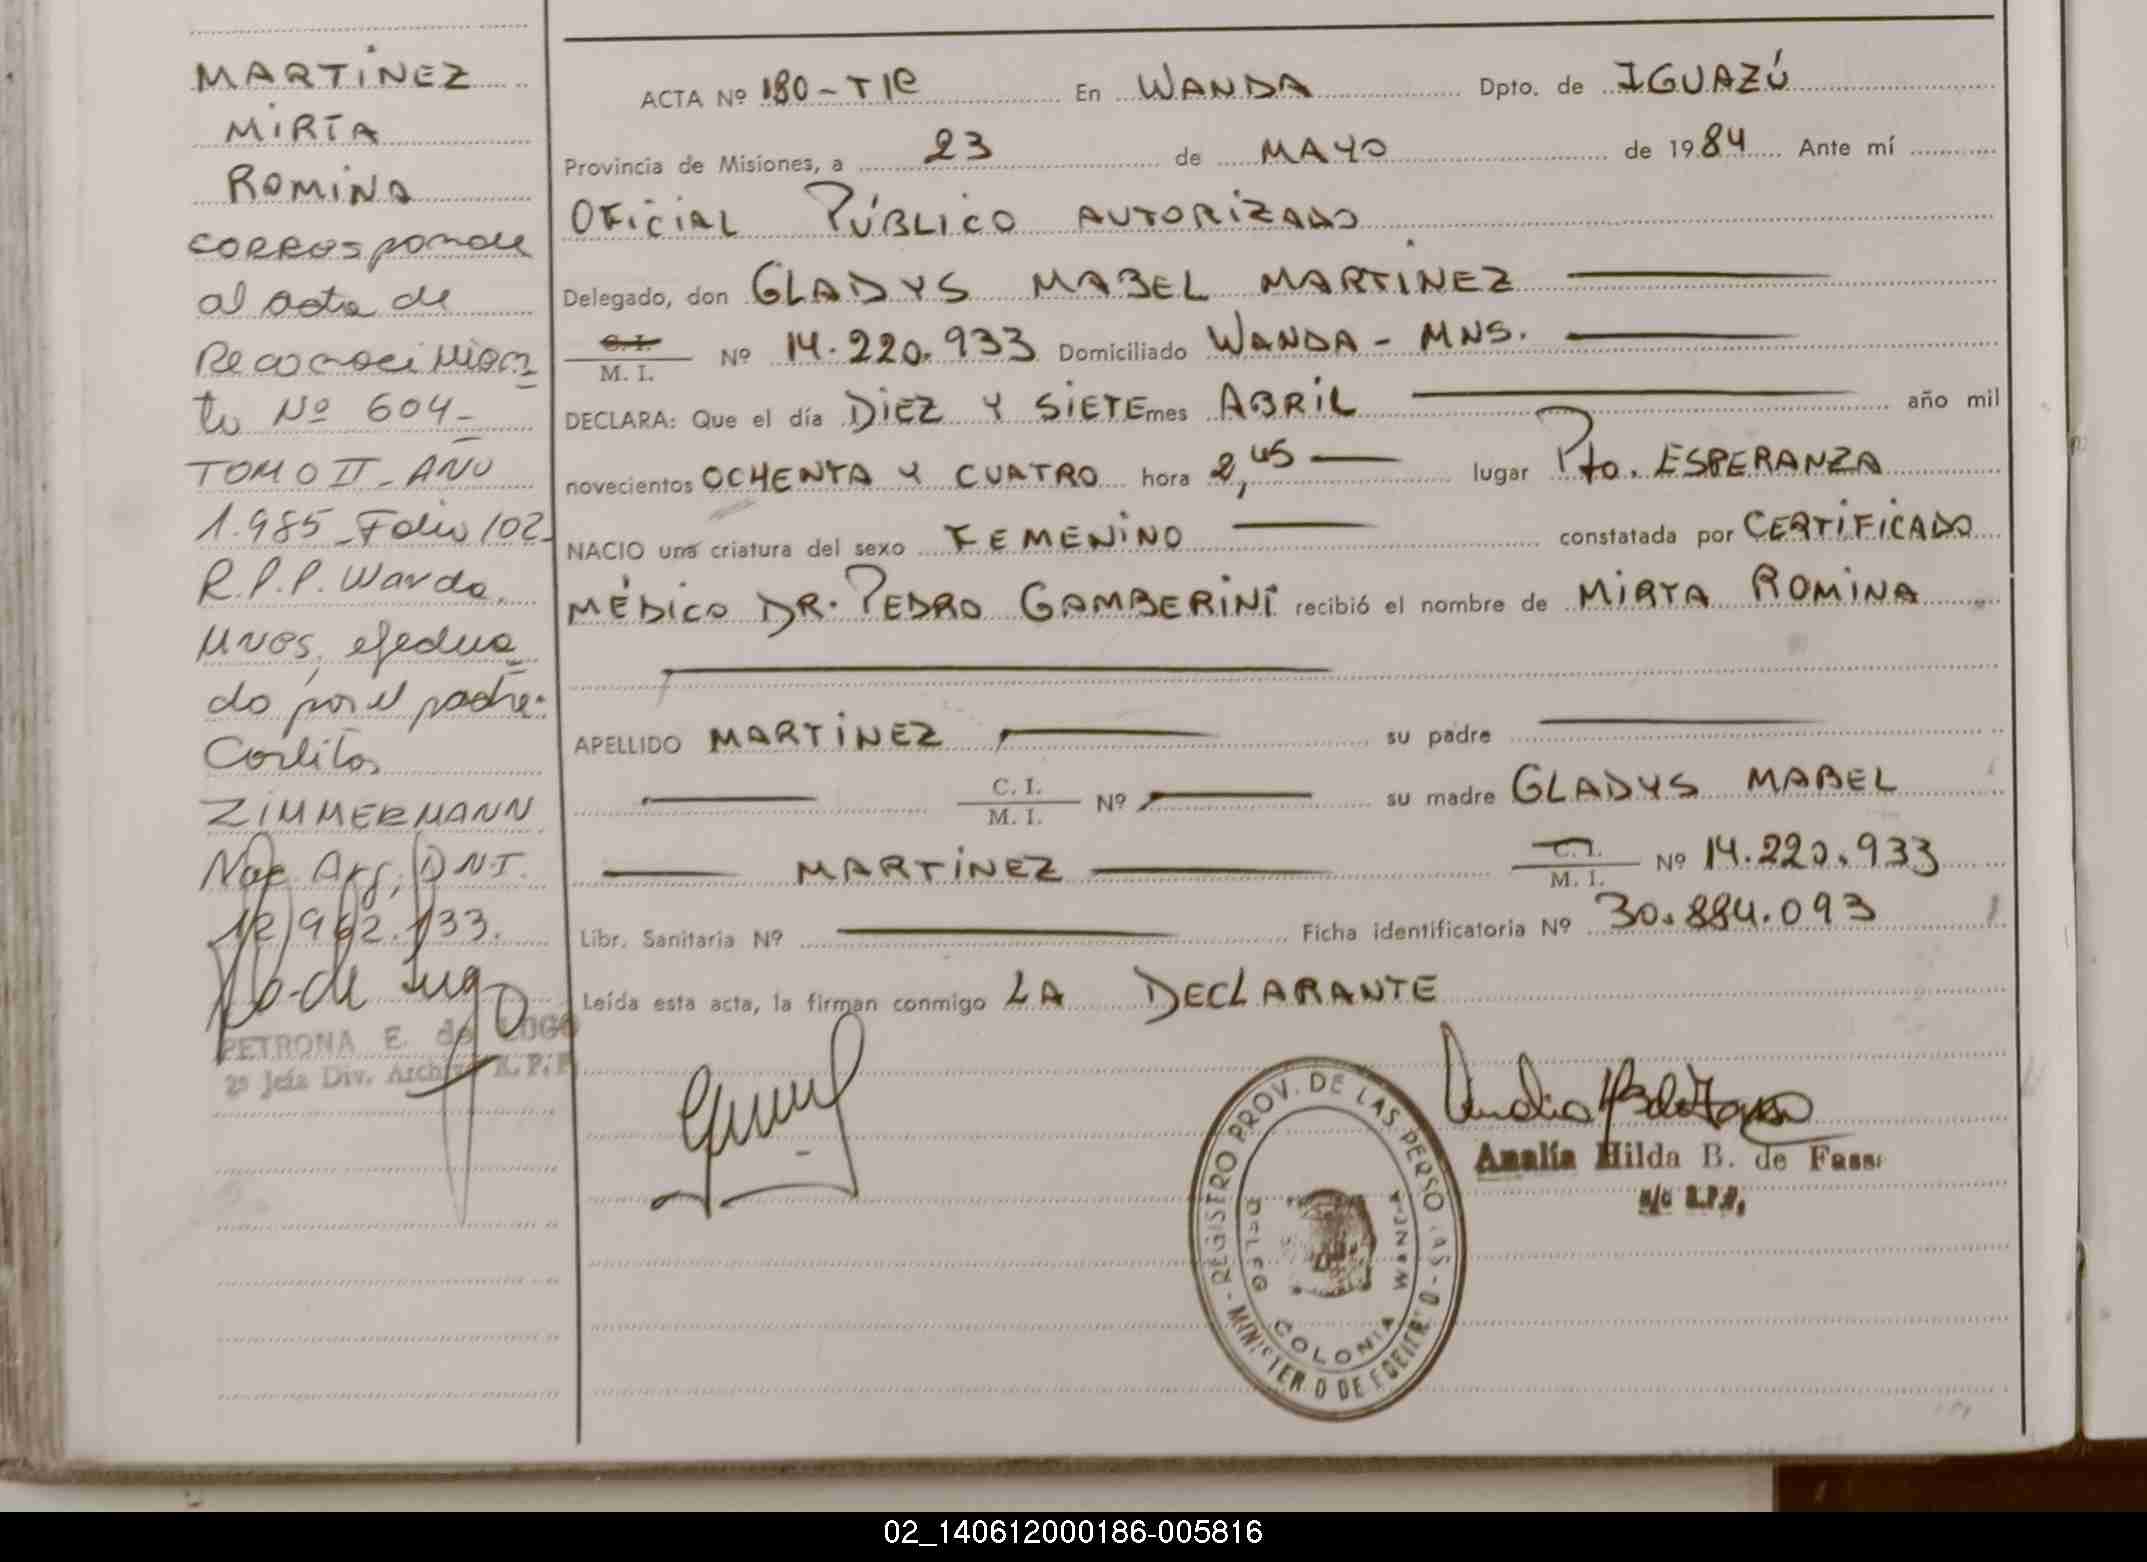 MARTÍNEZ
MIRTA
ROMINA
corresponde
al acta de
Reconocimien
to Nº 604-
TOMO II - AÑO
1.985 - Folio 102-
R.P.P. Wanda,
Mnes, efectua
do por el padre:
Carlitos
ZIMMERMANN
Nac. Arg, DNI.
12.962.133.
PETRONA E. de LUGO
2º Jefa Div. Archivo R.P.P
ACTA Nº 180-TIR En WANDA Dpto. de IGUAZÚ
Provincia de Misiones, a 23 de MAYO de 1984 Ante mí
OFICIAL PÚBLICO AUTORIZADO
Delegado, don GLADYS MABEL MARTINEZ
C. I.
M. I. Nº 14.220.933 Domiciliado WANDA - MNS.
DECLARA: Que el día DIEZ Y SIETE mes ABRIL año mil
novecientos OCHENTA Y CUATRO hora 2,45 lugar Pto. ESPERANZA
NACIO una criatura del sexo FEMENINO constatada por CERTIFICADO
MÉDICO DR. PEDRO GAMBERINI recibió el nombre de MIRTA ROMINA
APELLIDO MARTÍNEZ su padre
C. I.
M. I. Nº su madre GLADYS MABEL
MARTÍNEZ C. I.
M. I. Nº 14.220.933
Libr. Sanitaria Nº Ficha identificatoria Nº 30.884.093
Leída esta acta, la firman conmigo LA DECLARANTE
REGISTRO PROV. DE LAS PERSONAS - MINISTERIO DE GOBIERNO
DELEG COLONIA WANDA
Analía Hilda B. de Fass
a/c R.P.P.
02_140612000186-005816